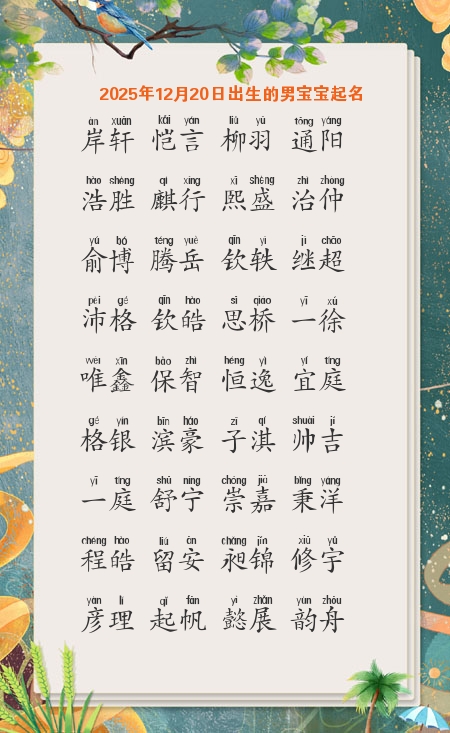 2025年12月20日出生的男宝宝起名
àn xuān kǎi yán liǔ yǔ tōng yáng
岸轩 恺言 柳羽 通阳
hào shèng qí xíng xī shèng zhì zhòng
浩胜 麒行 熙盛 治仲
yú bó téng yuè qīn yì jì chāo
俞博 腾岳 钦轶 继超
pèi gé qīn hào sī qiáo yī xú
沛格 钦皓 思桥 一徐
wéi xīn bǎo zhì héng yì yí tíng
唯鑫 保智 恒逸 宜庭
gé yín bīn háo zǐ qí shuài jí
格银 滨豪 子淇 帅吉
yī tíng shū níng chóng jiā bǐng yáng
一庭 舒宁 崇嘉 秉洋
chéng hào liú ān chǎng jǐn xiū yǔ
程皓 留安 昶锦 修宇
yàn lǐ qǐ fān yì zhǎn yùn zhōu
彦理 起帆 懿展 韵舟